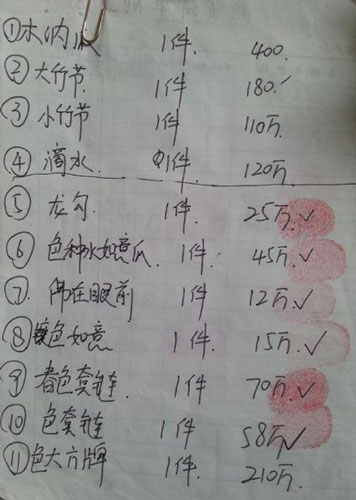 ①木纳 1件. 400.
②大竹节 1件 180.✓
③小竹节 1件 110万.
④滴水. 1件. 120万
⑤龙勾. 1件. 25万.✓
⑥色种水如意爪. 1件. 45万.✓
⑦佛在眼前 1件 12万✓
⑧色如意 1件 15万.✓
⑨春色套链. 1件 70万✓
⑩色套链 1件 58万✓
⑪色大方牌 1件. 210万.